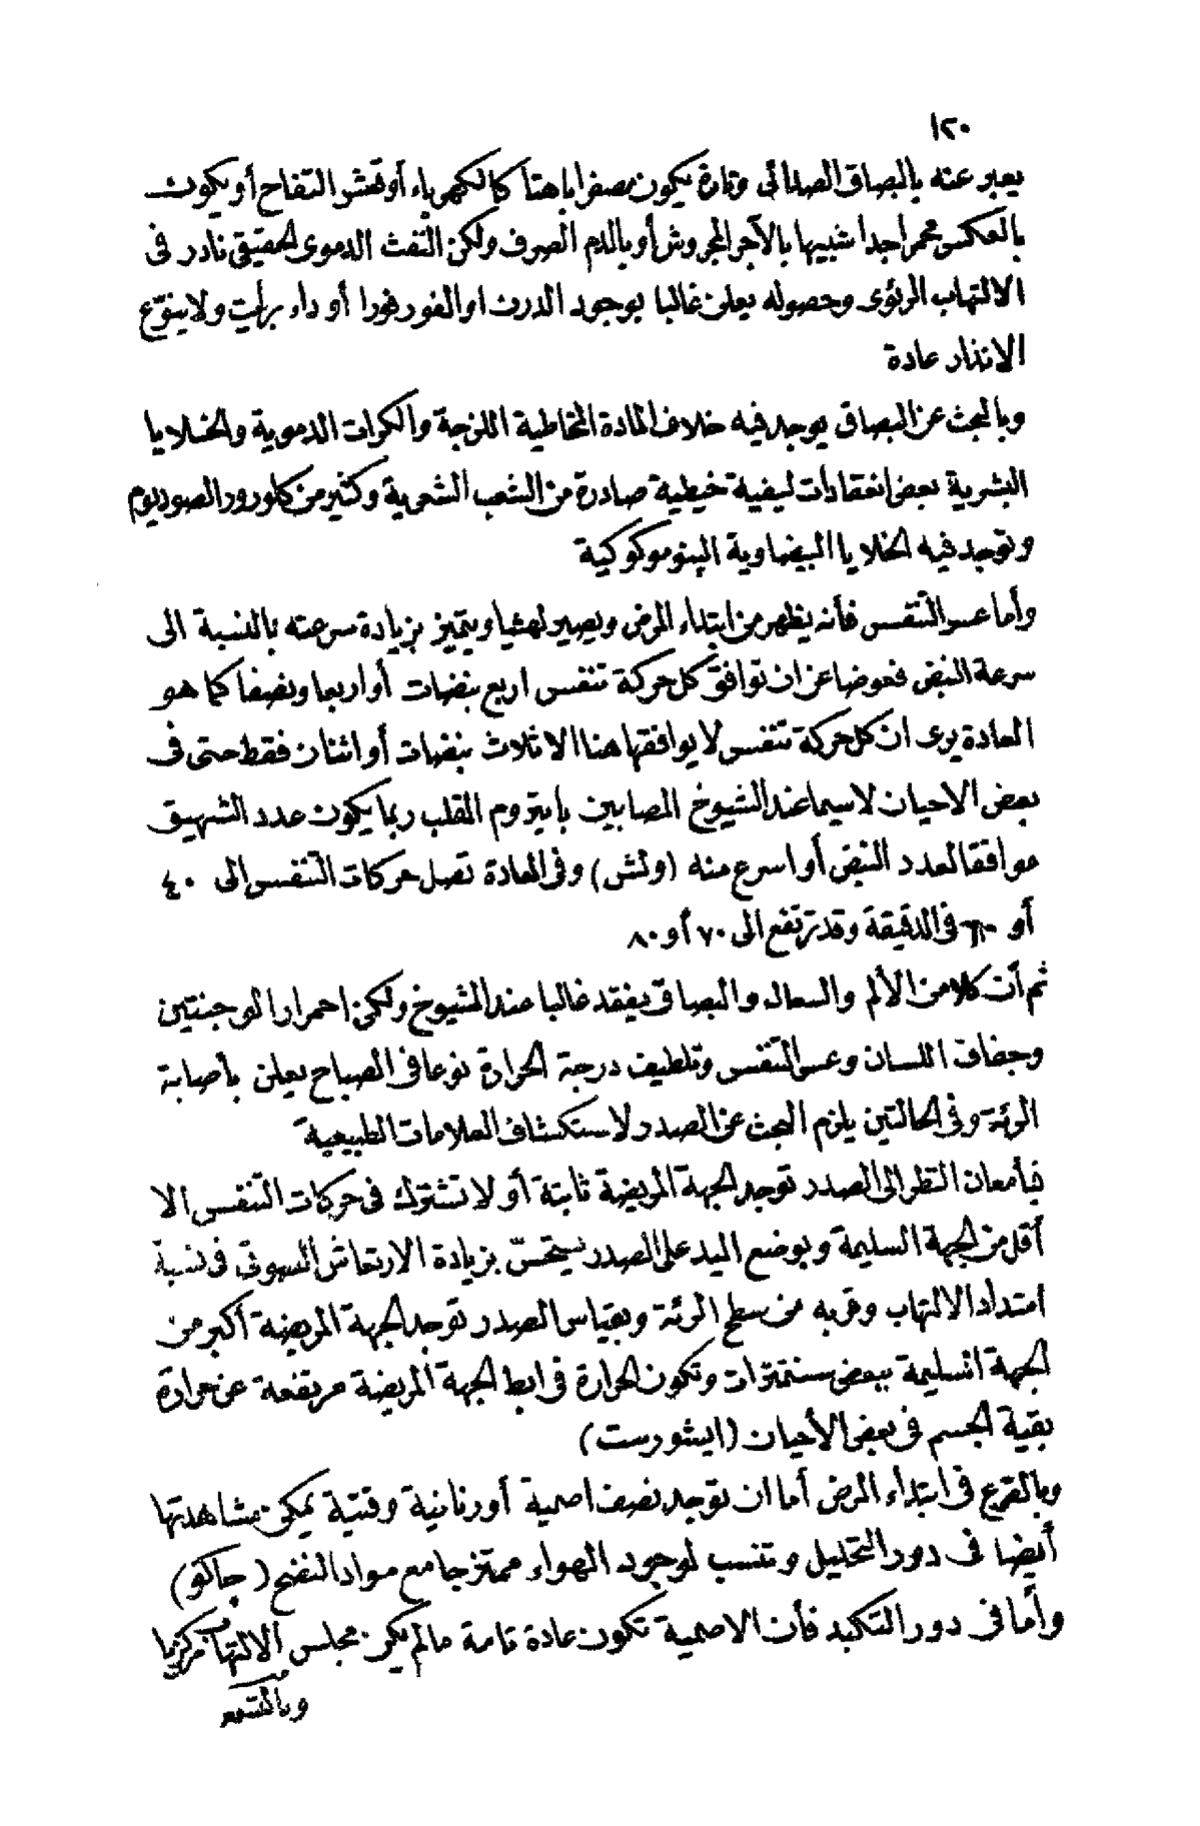 ١٢٠
يعبر عنه بالبصاق الصدائى وتارة يكون مصفرا باهتا كالكهرباء أو قشر التفاح أو يكون
بالعكس محمرا جدا شبيها بالآجر المجروش أو بالدم الصرف ولكن النفث الدموى الحقيقى نادر فى
الالتهاب الرئوى وحصوله يعلن غالبا بوجود الدرن او الفورفورا أو داء برايت ولا يتنوّع
الانذار عادة
وبالبحث عن البصاق يوجد فيه خلاف المادة المخاطية اللزجة والكرات الدموية والخلايا
البشرية بعض انعقادات ليفية خيطية صادرة من الشعب الشعرية وكثير من كلورور الصوديوم
وتوجد فيه الخلايا البيضاوية البنوموكوكية
وأما عسر التنفس فأنه يظهر من ابتداء المرض ويصير لهثيا ويتميز بزيادة سرعته بالنسبة الى
سرعة النبض فعوضا عن ان توافق كل حركة تنفس اربع نبضات أو اربعا ونصفا كما هو
العادة يرى ان كل حركة تنفس لا يوافقها هنا الا ثلاث نبضات أو اثنان فقط حتى فى
بعض الاحيان لاسيما عند الشيوخ المصابين بايتروم القلب ربما يكون عدد الشهيق
موافقا لعدد النبض أو اسرع منه (ولش) وفى العادة تصل حركات التنفس الى ٤٠
أو ٦٠ فى الدقيقة وقد ترتفع الى ٧٠ أو ٨٠
ثم أن كلا من الألم والسعال والبصاق يفقد غالبا عند الشيوخ ولكن احمرار الوجنتين
وجفاف اللسان وعسر التنفس وتلطيف درجة الحرارة نوعا فى الصباح يعلن بأصابة
الرئة وفى الحالتين يلزم البحث عن الصدر لاستكشاف العلامات الطبيعية
فبأمعان النظر الى الصدر توجد الجهة المريضة ثابتة أو لا تشترك فى حركات التنفس الا
أقل من الجهة السليمة وبوضع اليد على الصدر يستحسّ بزيادة الارتعاش الصوتى فى نسبة
امتداد الالتهاب وقربه من سطح الرئة وبقياس الصدر توجد الجهة المريضة أكبر من
الجهة السليمة ببعض سنتمترات وتكون الحرارة فى ابط الجهة المريضة مرتفعة عن حرارة
بقية الجسم فى بعض الأحيان (ايشورست)
وبالقرع فى ابتداء المرض أما ان توجد نصف اصمية أو رنانية وقتية يمكن مشاهدتها
أيضا فى دور التحليل وتنسب لوجود الهواء ممتزجا مع مواد النضح (جاكو)
وأما فى دور التكبد فأن الاصمية تكون عادة تامة ما لم يكن مجلس الالتهاب مركزيا
وبالتسمع